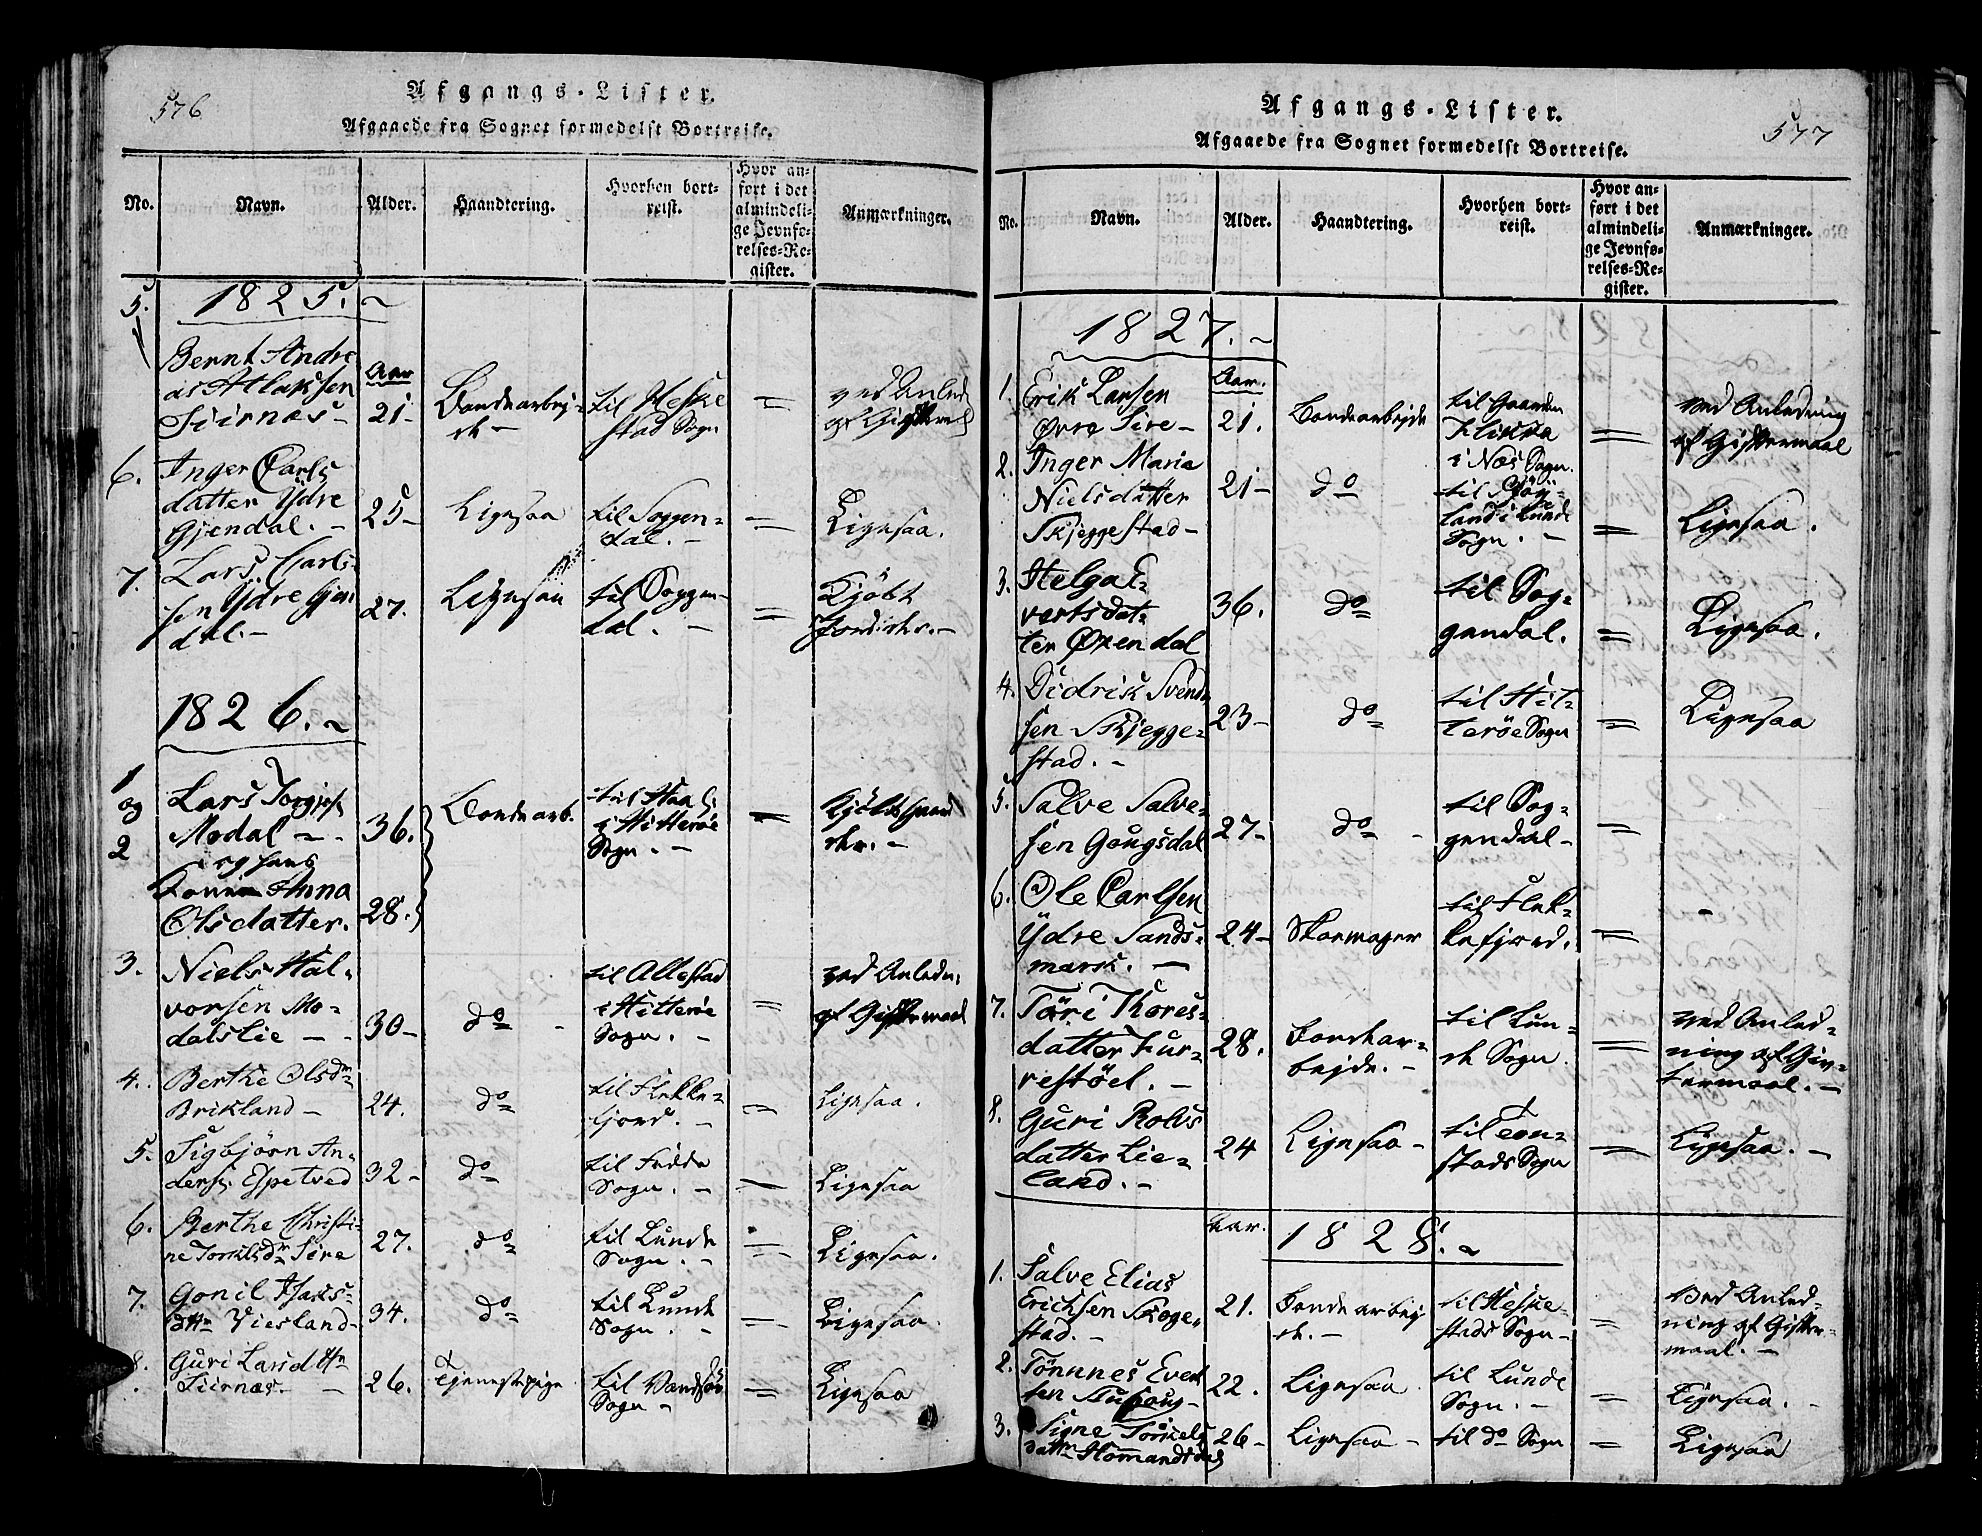 576
Afgangs-Lister.
Afgaaede fra Sognet formedelst Bortreise.
No. Navn. Alder. Haandtering. Hvorhen bortreist. Hvor anført i det almindelige Jevnførelses-Register. Anmærkninger.
1825.
5. Bernt Andreas Atlaksen Siirnæs - Aar 21 - Bondearbejde - til Heskestad Sogn = ved Anledn. af Giftermaal
6. Inger Carlsdatter Ydre Gjendal. - 25 - Ligesaa til Soggendal. - = Ligesaa.
7. Lars Carlssen Ydre Gjendal. - 27. Ligesaa til Soggendal. - = Kjøbt Jordbr. -
1826.
1 og 2 Lars Torgjes. Modal - 36. Bondearb. til Haa i Hitterøe Sogn. - = Kjøbt
og hans Kone Anna Olsdatter. 28.
3. Niels Halvorsen Modalslie - 30 - do til Allestad i Hitterøe Sogn. - = ved Anledn. af Giftermaal
4. Berthe Olsdtr Brikland - 24. do til Flekkefjord. - = Ligesaa.
5. Sigbjørn Anders. Espetved 32 - do til Fedde Sogn. - = Ligesaa
6. Berthe Christine Torkilsdtr Sire 27. do til Lunde Sogn. - = Ligesaa.
7. Gonil Isaksdtr Viesland - 34. do til Lunde Sogn. - = Ligesaa.
8. Guri Larsdtr Siirnæs. - 26. Tjenestepige til Sogn - = Ligesaa
577
Afgangs-Lister.
Afgaaede fra Sognet formedelst Bortreise.
No. Navn. Alder. Haandtering. Hvorhen bortreist. Hvor anført i det almindelige Jevnførelses-Register. Anmærkninger.
1827.
1. Erik Larsen Øvre Sire - Aar. 21. Bondearbejde til Gaarden Flikka i Næs Sogn. = ved Anledning af Giftermaal
2. Inger Maria Nielsdatter Skjeggestad - 21 - do til land i Lunde Sogn. - = Ligesaa.
3. Helga Evertsdatter Øxendal 36. do til Soggendal. = Ligesaa.
4. Didrik Svendsen Skjeggestad. - 23 - do til Hitterøe Sogn = Ligesaa
5. Salve Salvesen Gougsdal 27 - do - til Soggendal - =
6. Ole Carlsen Ydre Sandsmark. - 24 - Skoemager til Flekkefjord. = -
7. Töri Thoresdatter Furrestöel. - 28. Bondearbejde. - til Lunde Sogn. = ved Anledning af Giftermaal. -
8. Guri Rolvsdatter Lieland. - 24 Ligesaa - til Sogn = Ligesaa. -
Aar. 1828.
1. Salve Elias Erichsen Skogestad. - 21. Bondearbejde. - til Heskestads Sogn - = Ved Anledning af Giftermaal. -
2. Tønnes Evertsen 22. Ligesaa til Lunde Sogn. - = Ligesaa. -
3. Signe Torkelsdattr 26 - Ligesaa - til do Sogn = Ligesaa